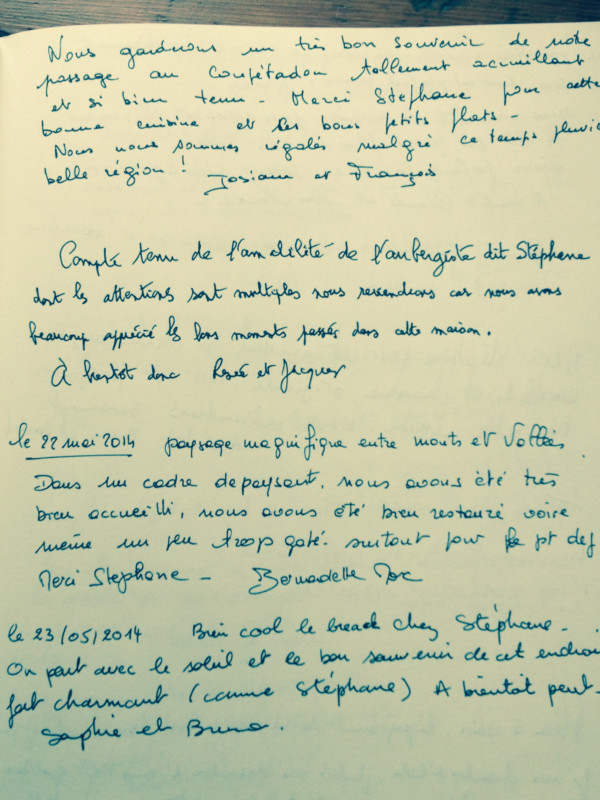 Nous garderons un très bon souvenir de notre
passage au Coupétadou tellement accueillant
et si bien tenu - Merci Stéphane pour cette
bonne cuisine et les bons petits plats -
Nous nous sommes régalés malgré ce temps pluvi
belle région ! Josiane et François
Compte tenu de l'amabilité de l'aubergiste dit Stéphane
dont les attentions sont multiples nous reviendrons car nous avons
beaucoup apprécié les bons moments passés dans cette maison.
À bientôt donc et Jacques
le 22 mai 2014 paysage magnifique entre monts et Vallées
Dans un cadre depaysant, nous avons été très
bien accueilli, nous avons été bien restauré voire
même un peu trop gaté. surtout pour le pt dej
Merci Stephane - Bernadette
le 23/05/2014 Bien cool le break chez Stéphane -
On part avec le soleil et le bon souvenir de cet endroi
fort charmant (comme Stéphane) A bientôt peut-
Sophie et Bruno.